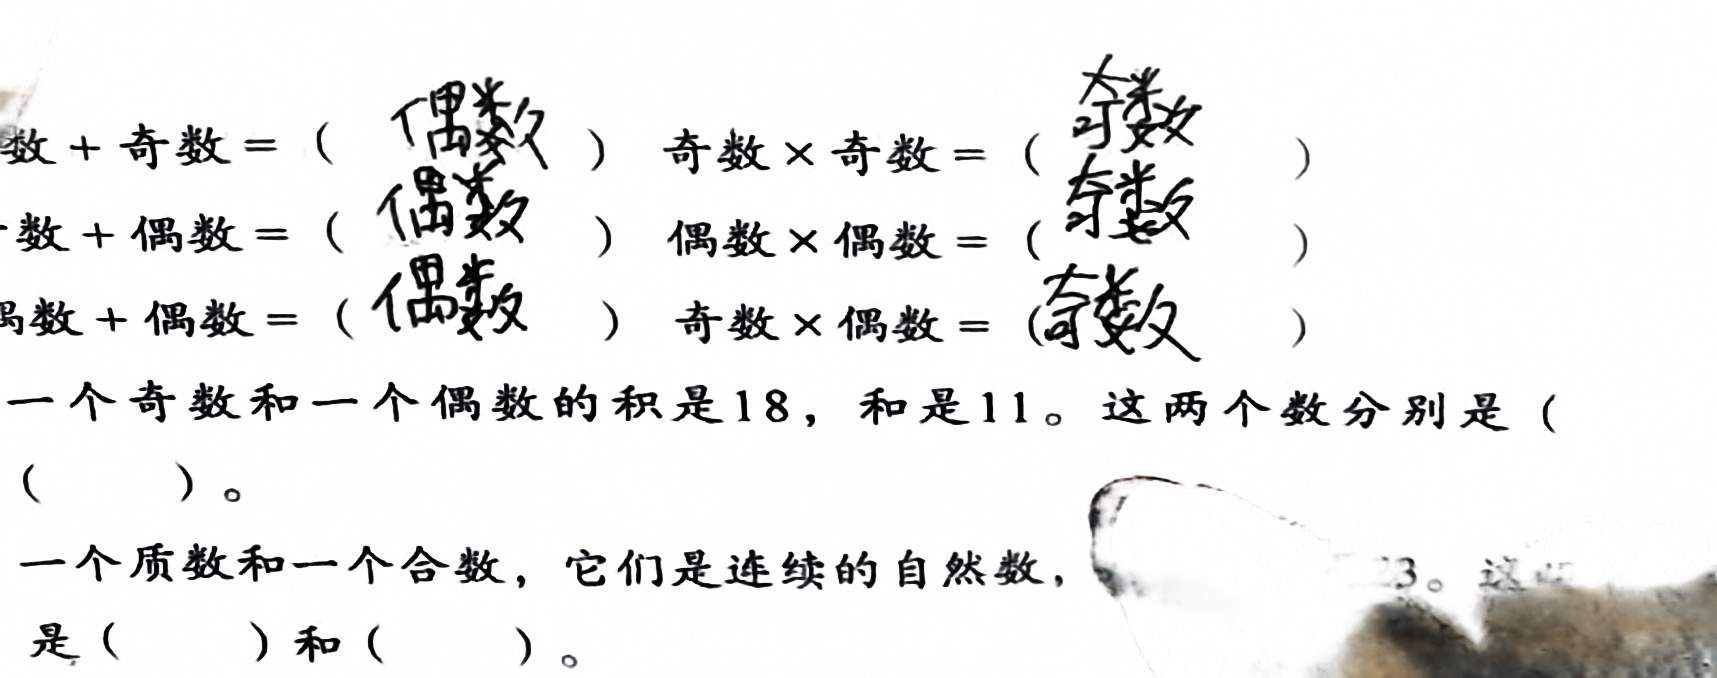 数+奇数=(偶数) 奇数×奇数=(奇数)
数+偶数=(偶数) 偶数×偶数=(奇数)
偶数+偶数=(偶数) 奇数×偶数=(奇数)
一个奇数和一个偶数的积是18，和是11。这两个数分别是(
( )。
一个质数和一个合数，它们是连续的自然数， 3。这
是( )和( )。